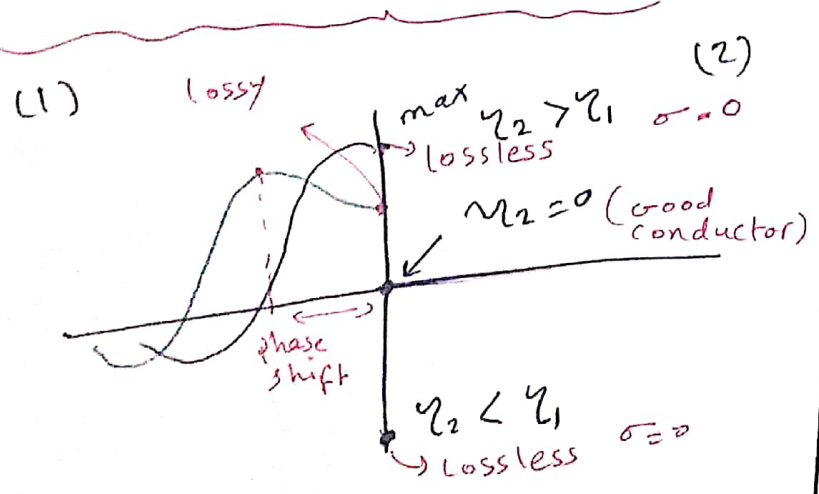 (1)
lossy
(2)
max η₂ > η₁ σ = 0
lossless
η₂ = 0 (Good
conductor)
phase
shift
η₂ < η₁
Lossless σ = 0